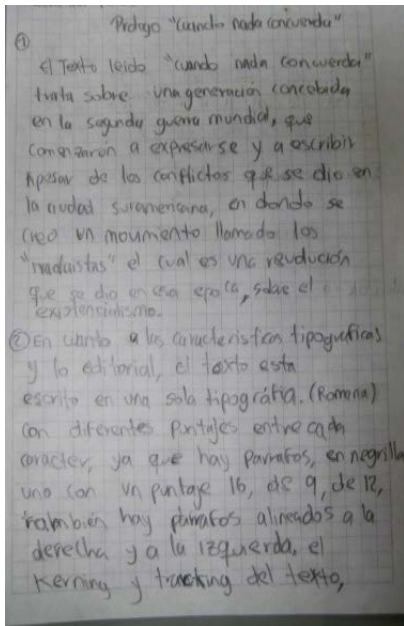 Prologo "cuando nada concuerda"
①
El Texto leido "cuando nada concuerda"
trata sobre una generación concebida
en la segunda guerra mundial, que
comenzaron a expresarse y a escribir
Apesar de los conflictos que se dio en
la ciudad suramericana, en donde se
creo un movimiento llamado los
"nadaistas" el cual es una revolución
que se dio en esa epoca, sobre el
existencialismo.
② En cuanto a las caracteristicas tipograficas
y lo editorial, el texto esta
escrito en una sola tipográfia. (Romana)
con diferentes puntajes entre cada
caracter, ya que hay parrafos, en negrilla
uno con un puntaje 16, de 9, de 12,
también hay párrafos alineados a la
derecha y a la izquerda, el
Kerning y tracking del texto,